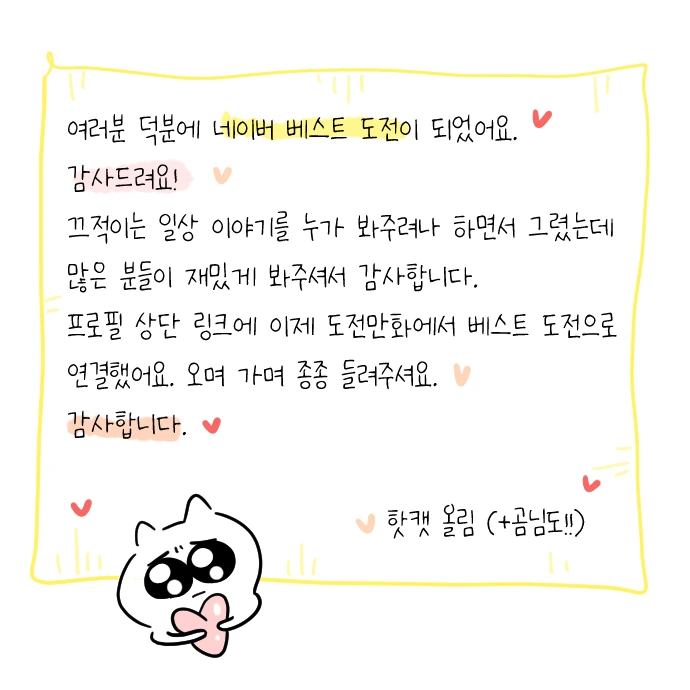 여러분 덕분에 네이버 베스트 도전이 되었어요.
감사드려요!
끄적이는 일상 이야기를 누가 봐주려나 하면서 그렸는데
많은 분들이 재밌게 봐주셔서 감사합니다.
프로필 상단 링크에 이제 도전만화에서 베스트 도전으로
연결했어요. 오며 가며 종종 들려주셔요.
감사합니다.
핫캣 올림 (+곰님도!!)